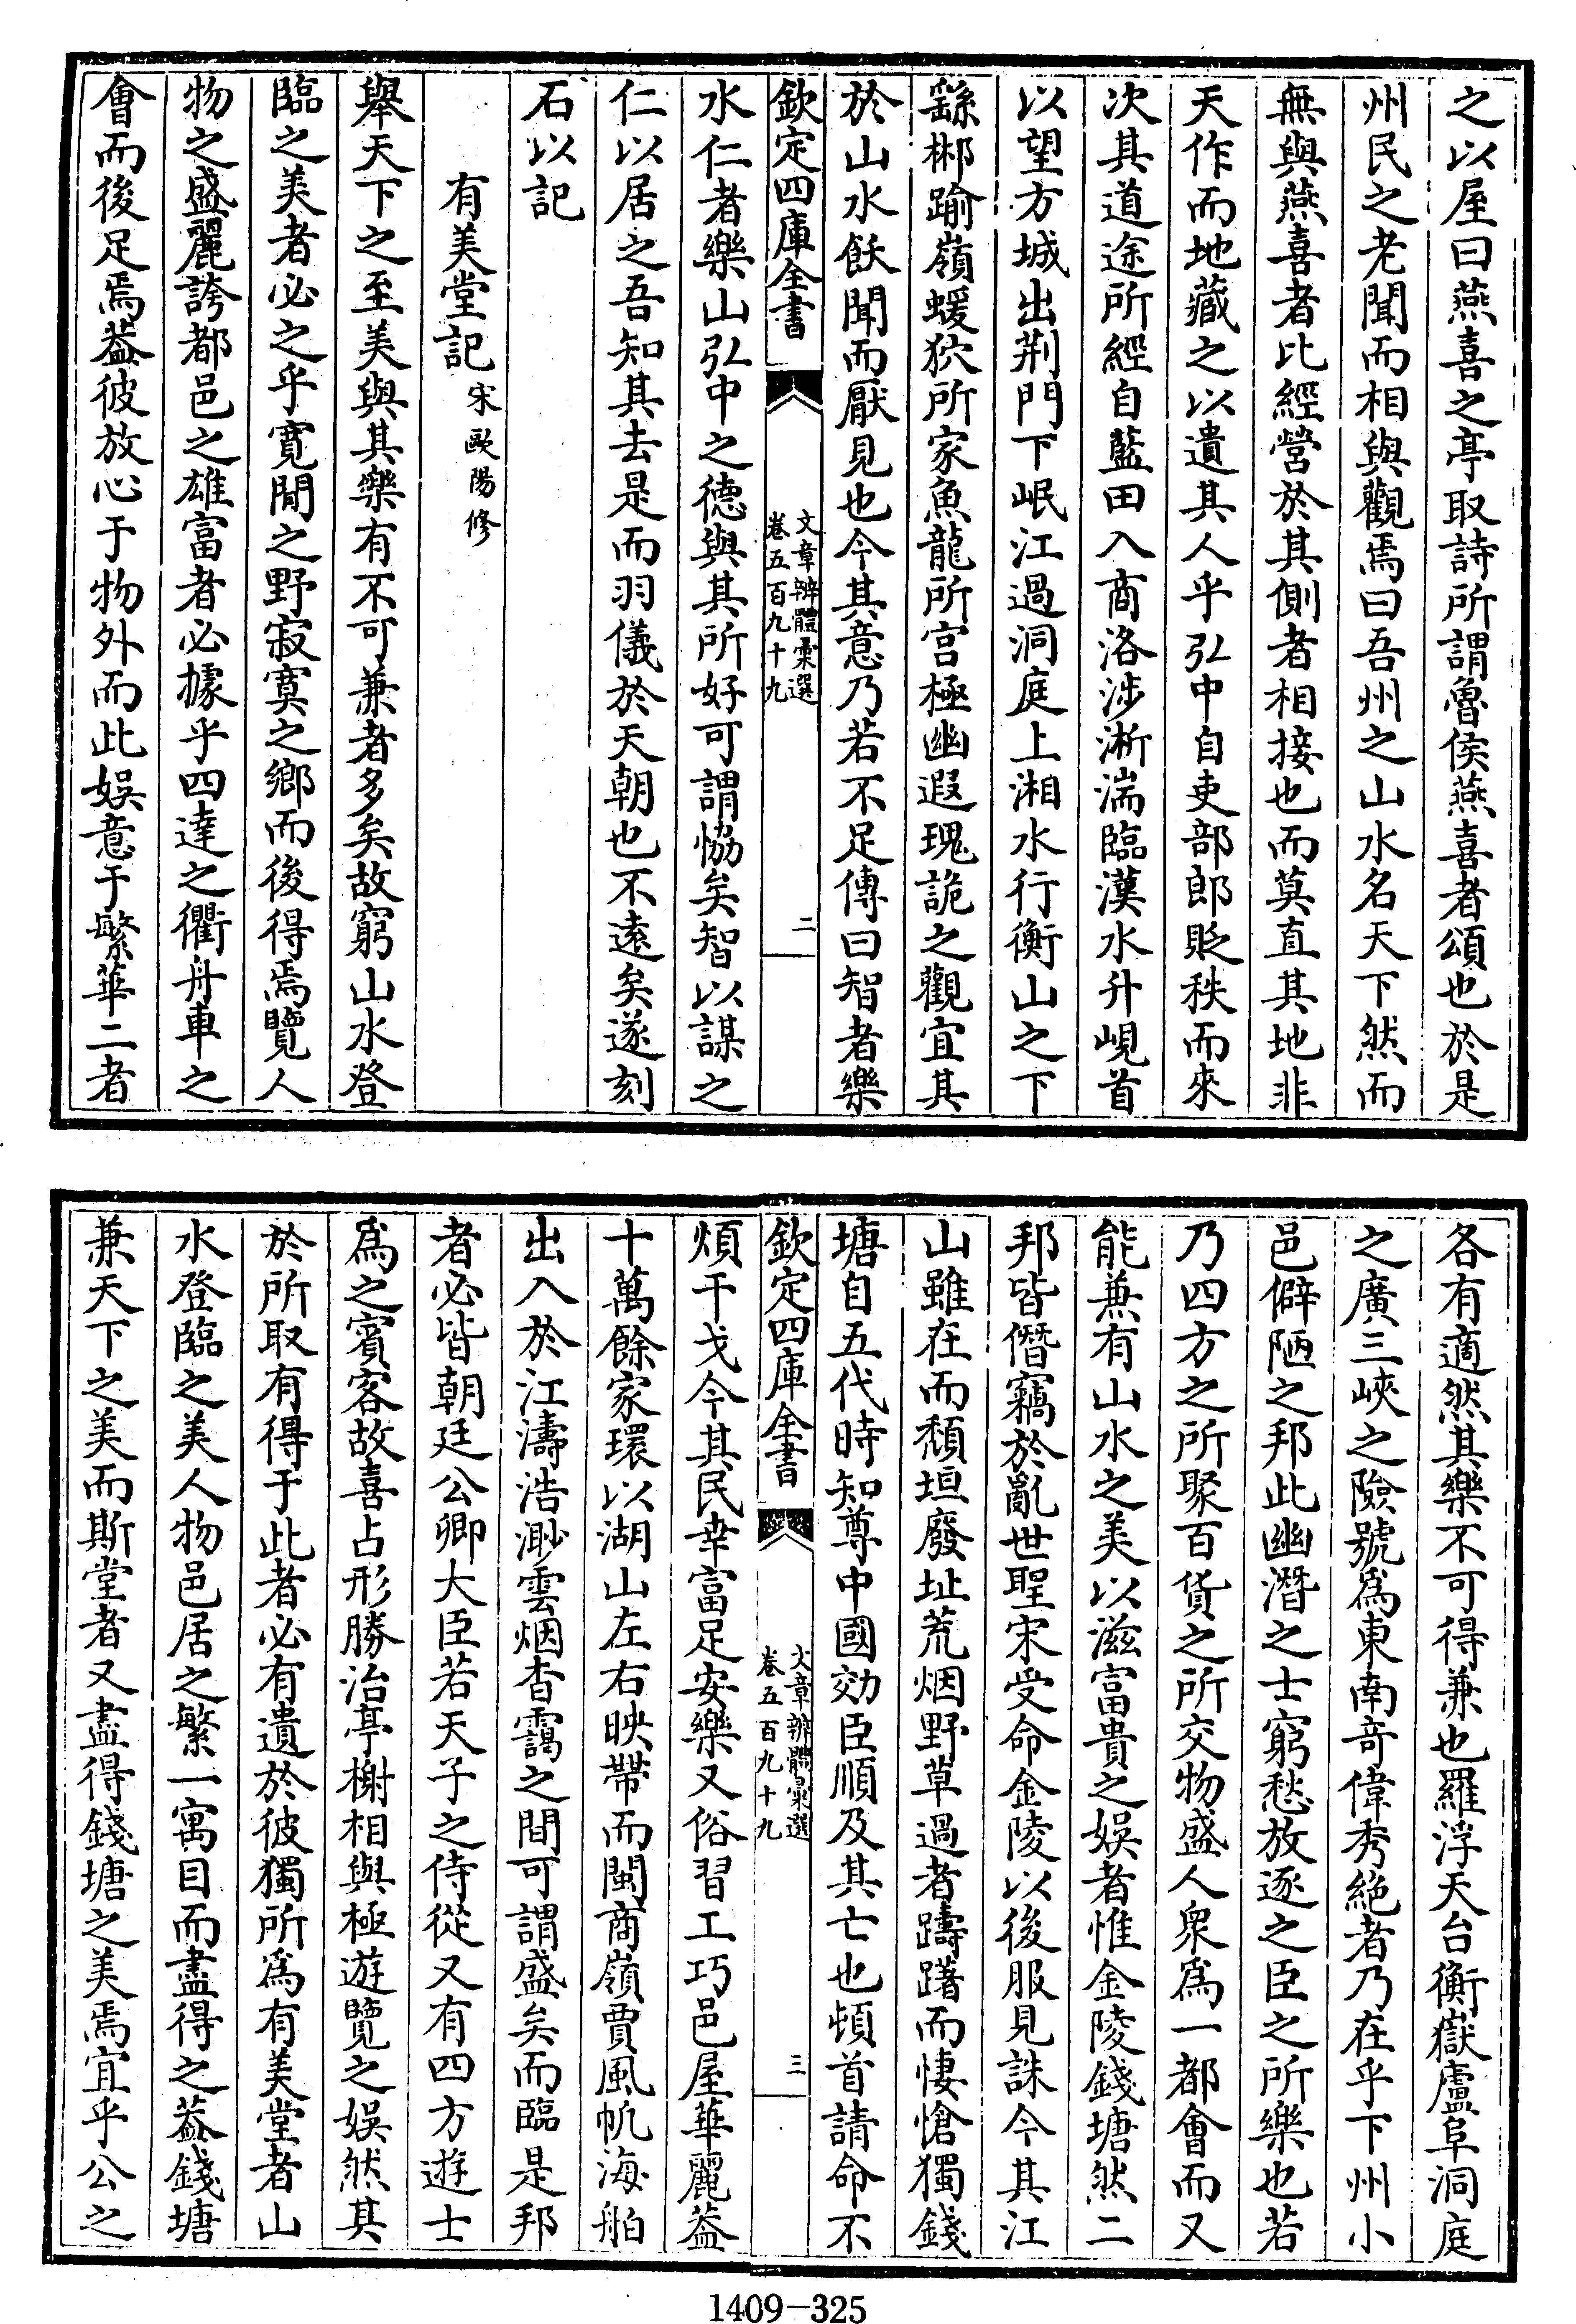 之以屋曰燕喜之亭取詩所謂魯侯燕喜者頌也於是
州民之老聞而相與觀焉曰吾州之山水名天下然而
無與燕喜者比經營於其側者相接也而莫直其地非
天作而地藏之以遺其人乎弘中自吏部郎貶秩而來
次其道途所經自藍田入商洛涉淅湍臨漢水升峴首
以望方城出荆門下岷江過洞庭上湘水行衡山之下
繇郴踰嶺蝯狖所家魚龍所宫極幽遐瑰詭之觀宜其
於山水飫聞而厭見也今其意乃若不足傳曰智者樂
欽定四庫全書
文章辨體彙選
卷五百九十九
二
水仁者樂山弘中之德與其所好可謂恊矣智以謀之
仁以居之吾知其去是而羽儀於天朝也不逺矣遂刻
石以記
有美堂記宋歐陽修
舉天下之至美與其樂有不可兼者多矣故窮山水登
臨之美者必之乎寛閒之野寂寞之鄉而後得焉覽人
物之盛麗誇都邑之雄富者必據乎四達之衢舟車之
會而後足焉葢彼放心于物外而此娛意于繁華二者
各有適然其樂不可得兼也羅浮天台衡嶽盧阜洞庭
之廣三峽之險號爲東南竒偉秀絶者乃在乎下州小
邑僻陋之邦此幽潛之士窮愁放逐之臣之所樂也若
乃四方之所聚百貨之所交物盛人衆爲一都會而又
能兼有山水之美以滋富貴之娛者惟金陵錢塘然二
邦皆僭竊於亂世聖宋受命金陵以後服見誅今其江
山雖在而頽垣廢址荒烟野草過者躊躇而悽愴獨錢
塘自五代時知尊中國効臣順及其亡也頓首請命不
欽定四庫全書
文章辨體彙選
卷五百九十九
三
煩干戈今其民幸富足安樂又俗習工巧邑屋華麗葢
十萬餘家環以湖山左右映帶而閩商嶺賈風帆海舶
出入於江濤浩渺雲烟杳靄之間可謂盛矣而臨是邦
者必皆朝廷公卿大臣若天子之侍從又有四方遊士
爲之賓客故喜占形勝治亭榭相與極遊覽之娛然其
於所取有得于此者必有遺於彼獨所爲有美堂者山
水登臨之美人物邑居之繁一寓目而盡得之葢錢塘
兼天下之美而斯堂者又盡得錢塘之美焉宜乎公之
1409-325